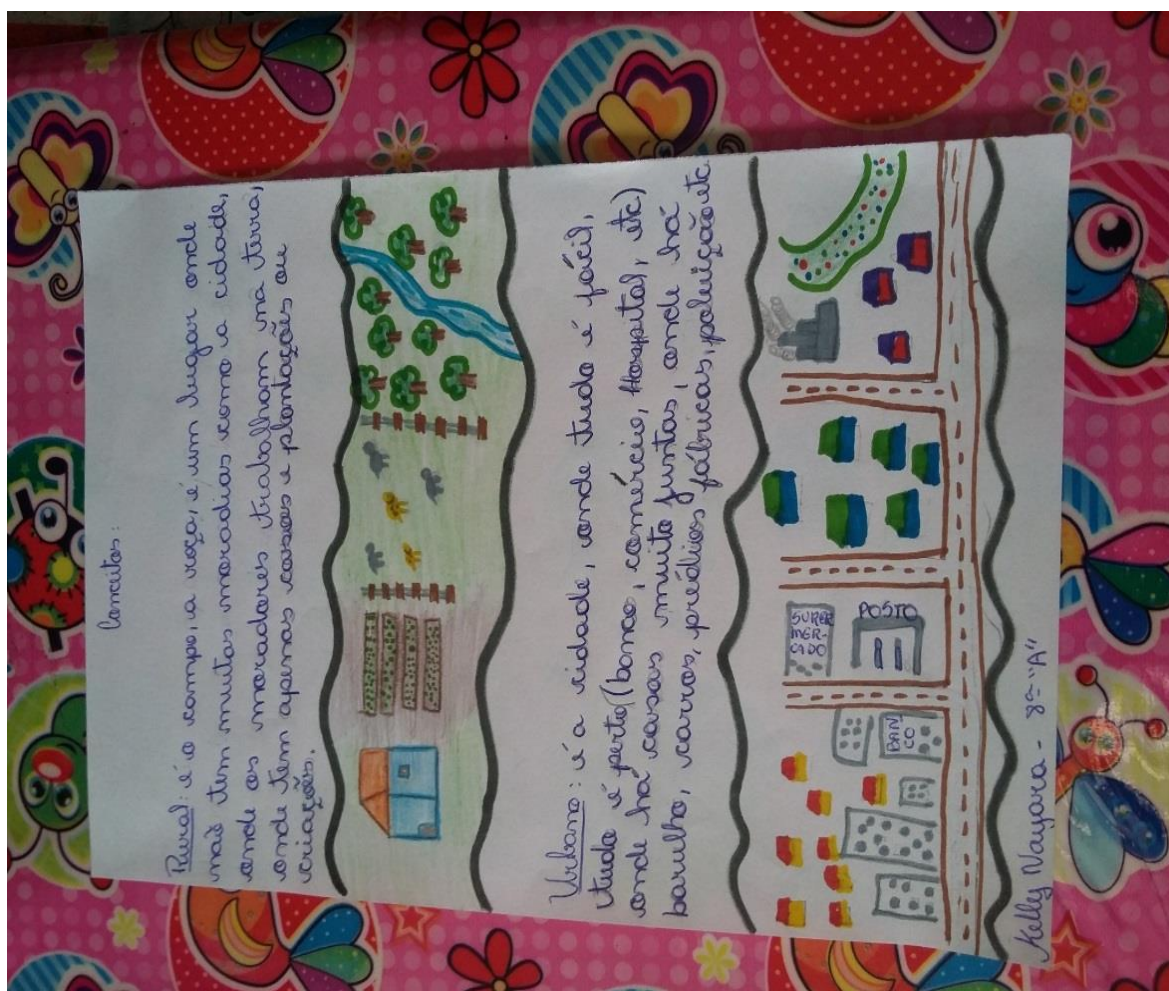 Conceitos:
Rural: é o campo, a roça, é um lugar onde
não tem muitas moradias como a cidade,
onde os moradores trabalham na terra,
onde tem apenas casas e plantações ou
criações.
Urbano: é a cidade, onde tudo é fácil,
tudo é perto (banco, comércio, Hospital, etc)
onde há casas muito juntas, onde há
barulho, carros, prédios fábricas, poluição etc.
SUPER
MER-
CADO
POSTO
BAN
CO
Kelly Nayara - 8º "A"